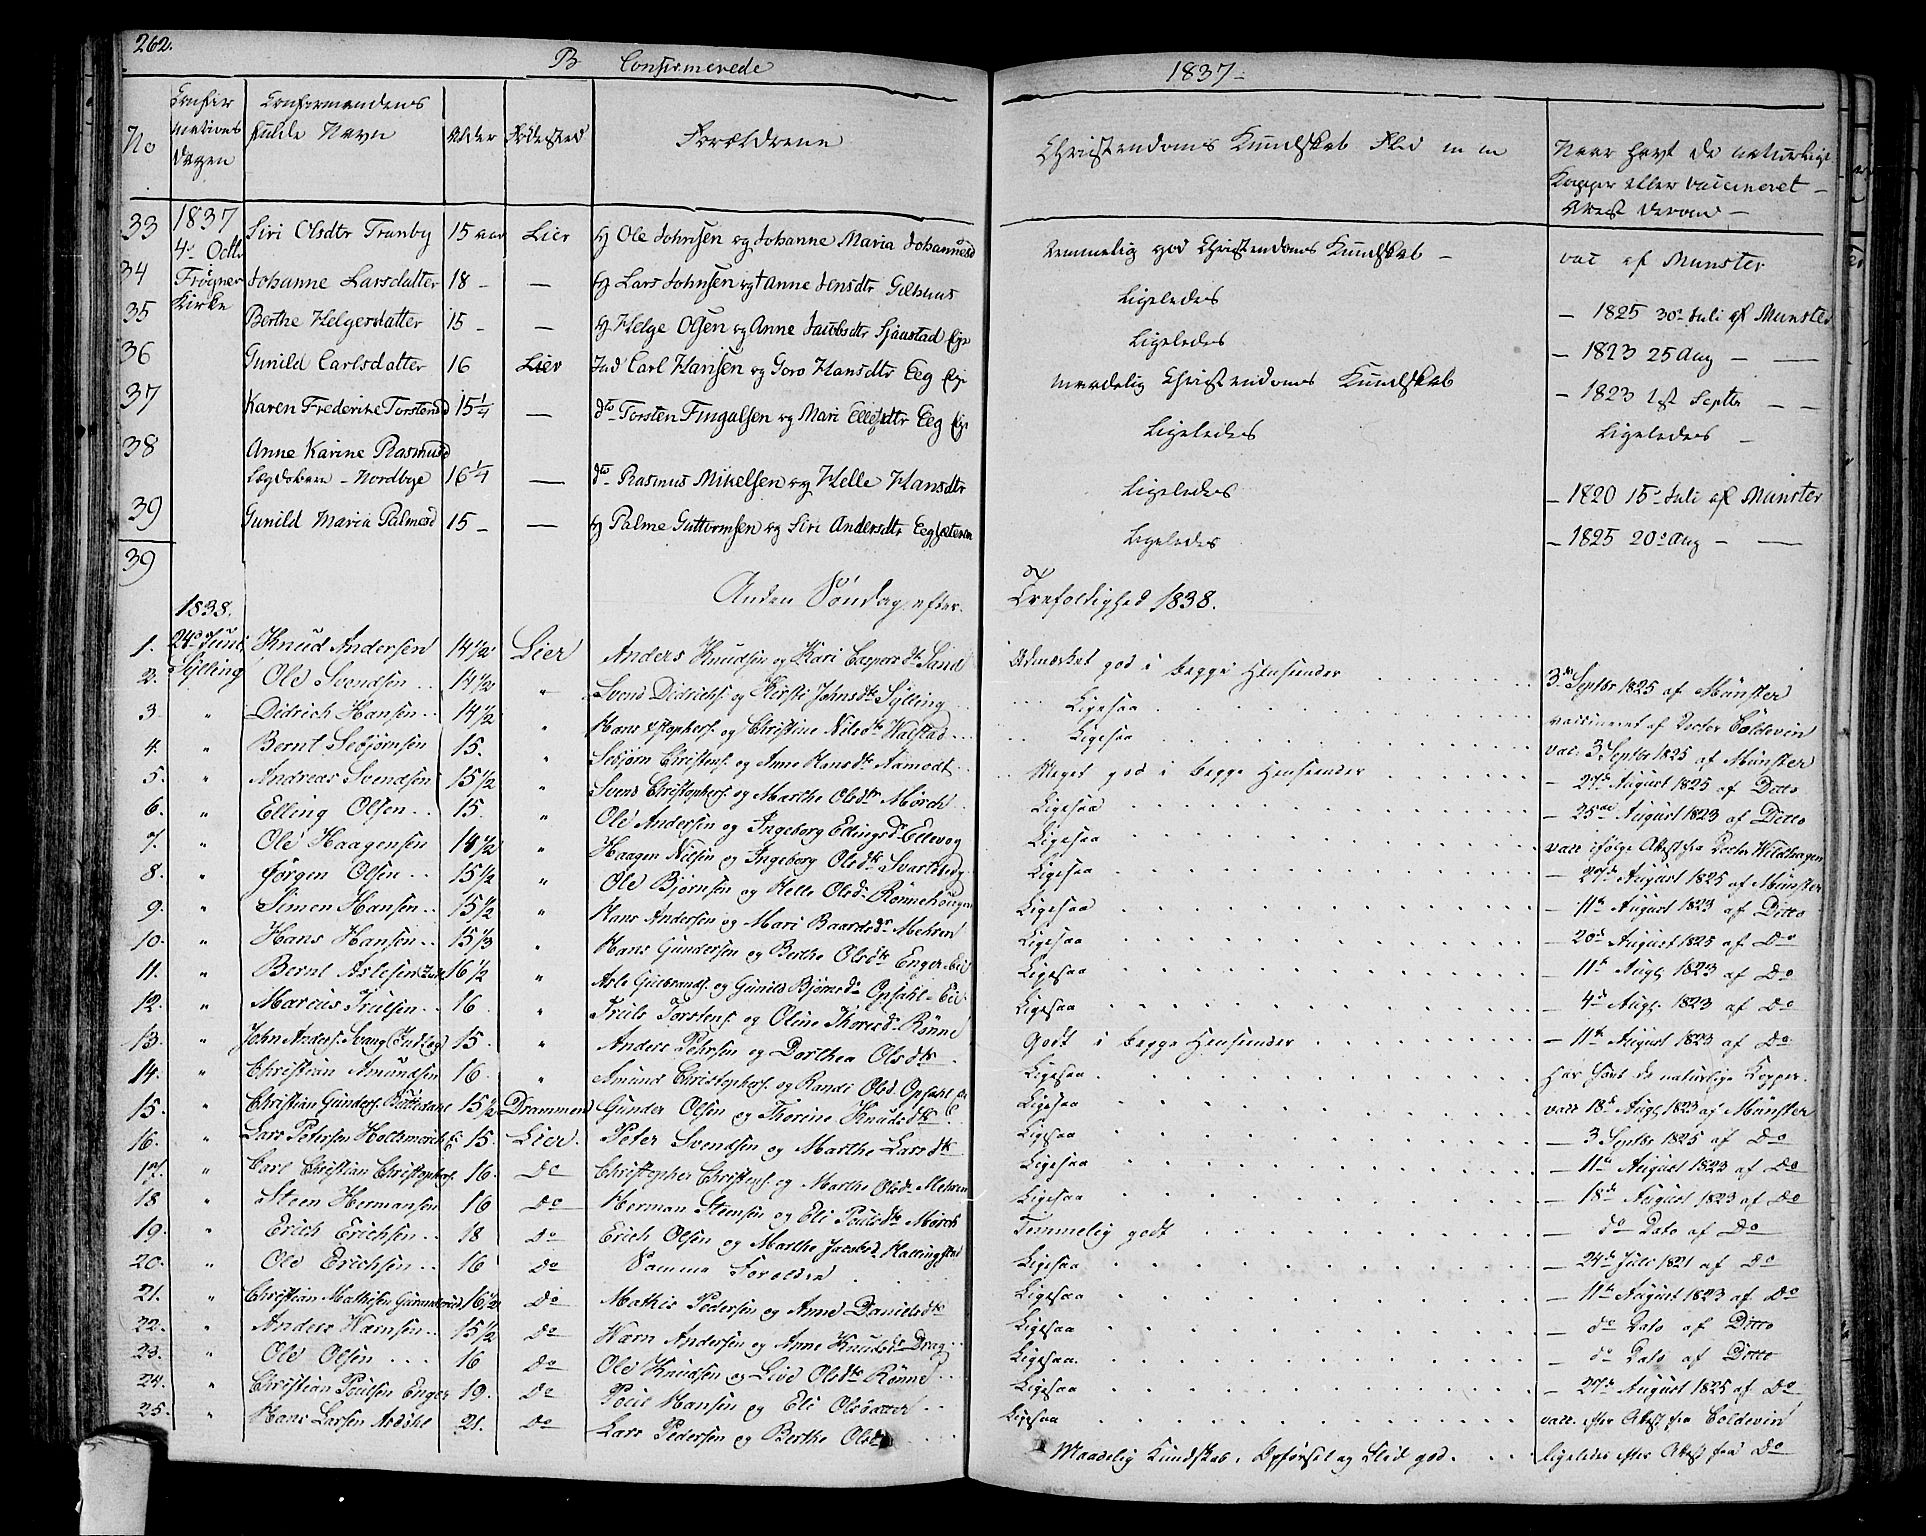 262.
B Confirmerede
1837 -
No
Confir
mations
Dagen
Confirmandens
fulde Navn
Alder
Fødested
Forældrene
Christendoms Kundskab Flid m m
Naar havt de naturlige
Kopper eller vaccineret -
Attest derom -
33 1837 Siri Olsdtr Tranby 15 aar Lier Ole Johnsen og Johanne Maria Johannesd
4de Octbr
Temmelig god Christendoms Kundskab -
vac af Munster
34 Frogner Johanne Larsdatter 18 - — Lars Johnsen og Anne Jensdtr Gilhuus
Ligeledes
- 1825 30te Juli af Munster
35 Kirke Berthe Helgesdatter 15 - — Helge Olsen og Anne Jacobsdtr Sjaastad Eje
Ligeledes
- 1823 25 Aug - —
36 Gunild Carlsdatter 16 Lier Ind Carl Hansen og Goro Hansdtr Eeg Eje
maadelig Christendoms Kundskab
- 1823 1st Septbr - -
37 Karen Frederike Torstensd 15 1/4 — dto Torsten Fingalsen og Mari Ellefsdtr Eeg Eje
Ligeledes
Ligeledes -
38 Anne Karine Rasmusd
Lægdsbarn - Nordbye 16 1/4 — dto Rasmus Mikelsen og Helle Hansdtr
Ligeledes
- 1820 15de Juli af Munster
39 Gunild Maria Palmesd 15 - — Palme Guttormsen og Siri Andersdtr Eegsæteren
Ligeledes
- 1825 20de Aug - —
39
Anden Søndag efter
Trefoldighed 1838.
1838.
1. 24de Juni Knud Andersen 14 1/2 Lier Anders Knudsen og Kari Caspersdtr Sand
Udmærket god i begge Hensender
3die Septbr 1825 af Münster
2. Sylling Ole Svendsen 14 1/2 " Svend Didrichs. og Kirsti Johnsdtr Sylling
Ligesaa
vaccineret af Doctor Coldevin
3. " Didrich Hansen 14 1/2 " Hans Christophers. og Christine Nilsdtr Walstad
Ligesaa
vac. 3 Septbr 1825 af Münster
4. " Bernt Sebjørnsen 15. " Sebjørn Christens. og Anne Hansdtr Aamodt
Meget god i begge Hensender
- 27de August 1825 af Ditto
5. " Andreas Svendsen 15 1/2 " Svend Christophers. og Marthe Olsdtr Mörch
Ligesaa
- 25de August 1823 af Ditto
6. " Elling Olsen 15. " Ole Andersen og Ingeborg Ellingsdr Ellevog
Ligesaa
vacc ifølge Attest fra Doctor Wildhagen
7. " Ole Haagensen 14 1/2 " Haagen Nilsen og Ingeborg Olsdtr Svartebrg
Ligesaa
- 27de August 1825 af Münster
8. " Jørgen Olsen 15 1/2 " Ole Bjørnsen og Helle Olsdr Rønnehougen
Ligesaa
- 11te August 1823 af Ditto
9. " Simen Hansen 15 1/2 " Hans Andersen og Mari Baardsdr Mehren
Ligesaa
- 20de August 1825 af Do
10. " Hans Hansen 15 1/3 " Hans Gundersen og Berthe Olsdtr Enger Eie
Ligesaa
- 11te Augs 1823 af Do
11. " Bernt Aslesen 16 1/2 " Asle Gulbrands. og Gunild Bjørnsdr Opsahl-Eie
Ligesaa
- 4de Augs. 1823 af Do
12. " Marius Trulsen 16. " Truls Torstens. og Oline Thoresdr Rønne
Godt i begge Hensender
- 11te August 1823 af Do
13. " John Anders. Svang (Indlag) 15. " Anders Pehrsen og Dorthea Olsdtr
Ligesaa
Har havt de naturlige Kopper.
14. " Christian Amundsen 16. " Amund Christophers. og Randi Olsd. Opsahl
Ligesaa
vacc 18de Augs 1823 af Münster
15. " Christian Gunders. 15 1/2 Drammen Gunder Olsen og Thorine Knudsdtr
Ligesaa
- 3 Septbr 1825 af Do
16. " Lars Petersen 15. Lier. Peter Svendsen og Marthe Larsdtr
Ligesaa
- 11te August 1823 af Do
17. " Carl Christian Christophers. 16. Do Christopher Christens. og Marthe Olsdr Mehren
Ligesaa
- 18de August 1823 af Do
18 " Steen Hermansen 16 Do Herman Steensen og Eli Poulsdtr Mörch
Temmelig godt
- do Dato af Do
19. " Erich Erichsen 18 Do Erich Olsen og Marthe Jacobsd. Hallingstad
Ligesaa
- 24de Juli 1821 af Do
20. " Ole Erichsen 16 Do Samme Foreldre
Ligesaa
- 11te August 1823 af Do
21. " Christian Mathisen 16 1/2 Do Mathis Pedersen og Anne Danielsdtr
Ligesaa
- do Dato af Ditto
22. " Anders Hansen 15 1/2 Do Hans Andersen og Anne Knudsdr Drag
Ligesaa.
- do Dato af Ditto
23. " Ole Olsen 16 Do Ole Knudsen og Live Olsdtr Rønne
Ligesaa
- 27de August 1825 af Do
24. " Christian Poulsen Enger 19. Do Poul Hansen og Eli Olsdatter
Ligesaa
vacc. efter Attest fra Coldevin
25. " Hans Larsen 21. Do Lars Pedersen og Berthe Olsd
Maadelig Kundskab, Opførsel og Flid god.
ligeledes efter Attest fra Do